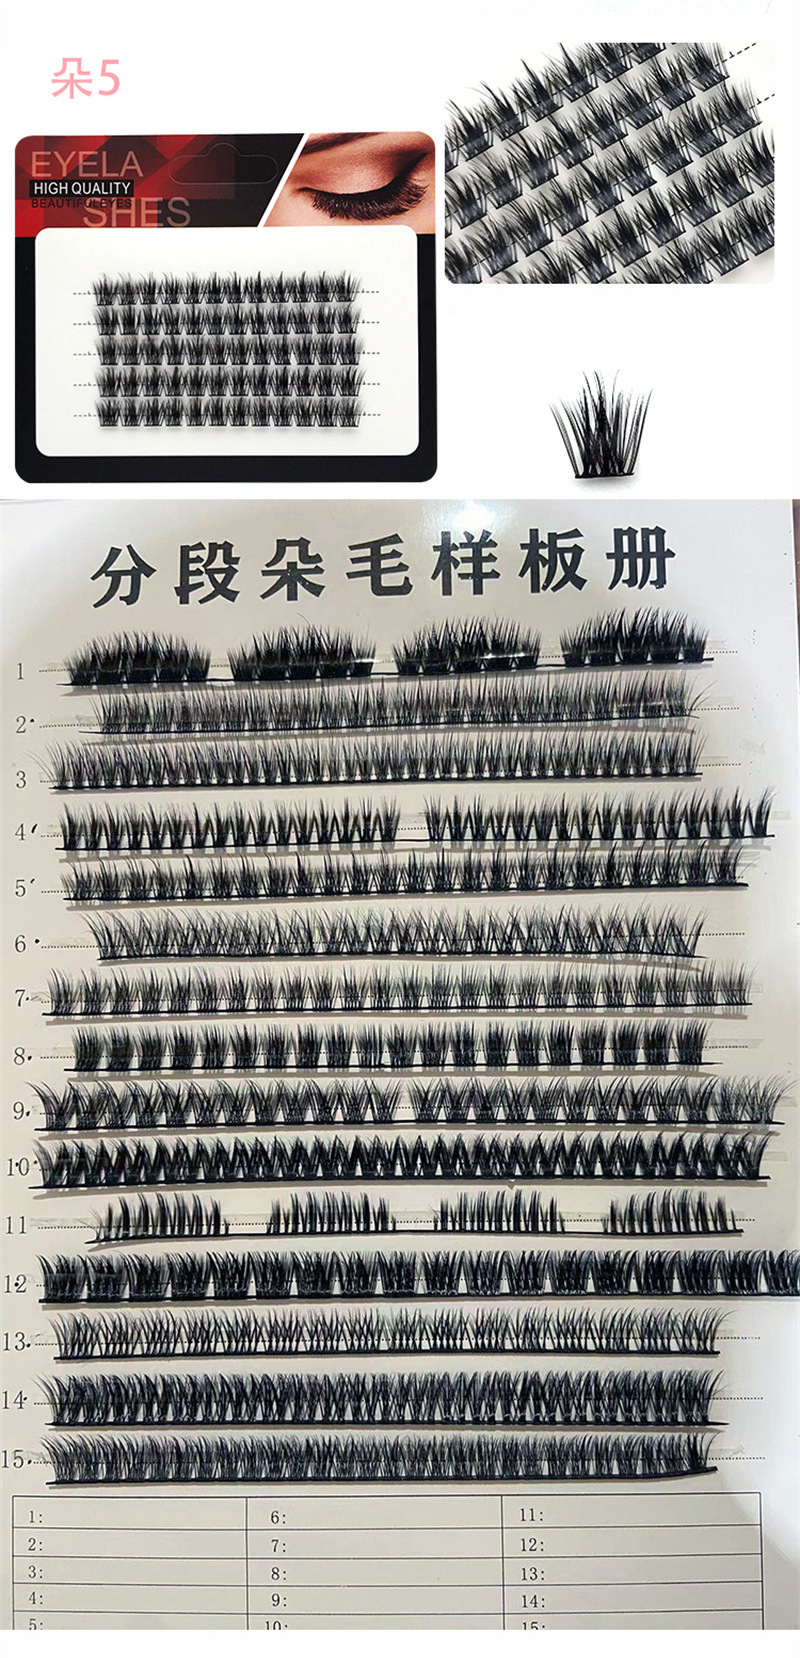 朵5
EYELA
HIGH QUALITY
BEAUTIFULEYES
SHES
分段朵毛样板册
1
2
3
4
5
6
7
8
9
10
11
12
13
14
15
1: 6: 11:
2: 7: 12:
3: 8: 13:
4: 9: 14:
5: 10: 15: